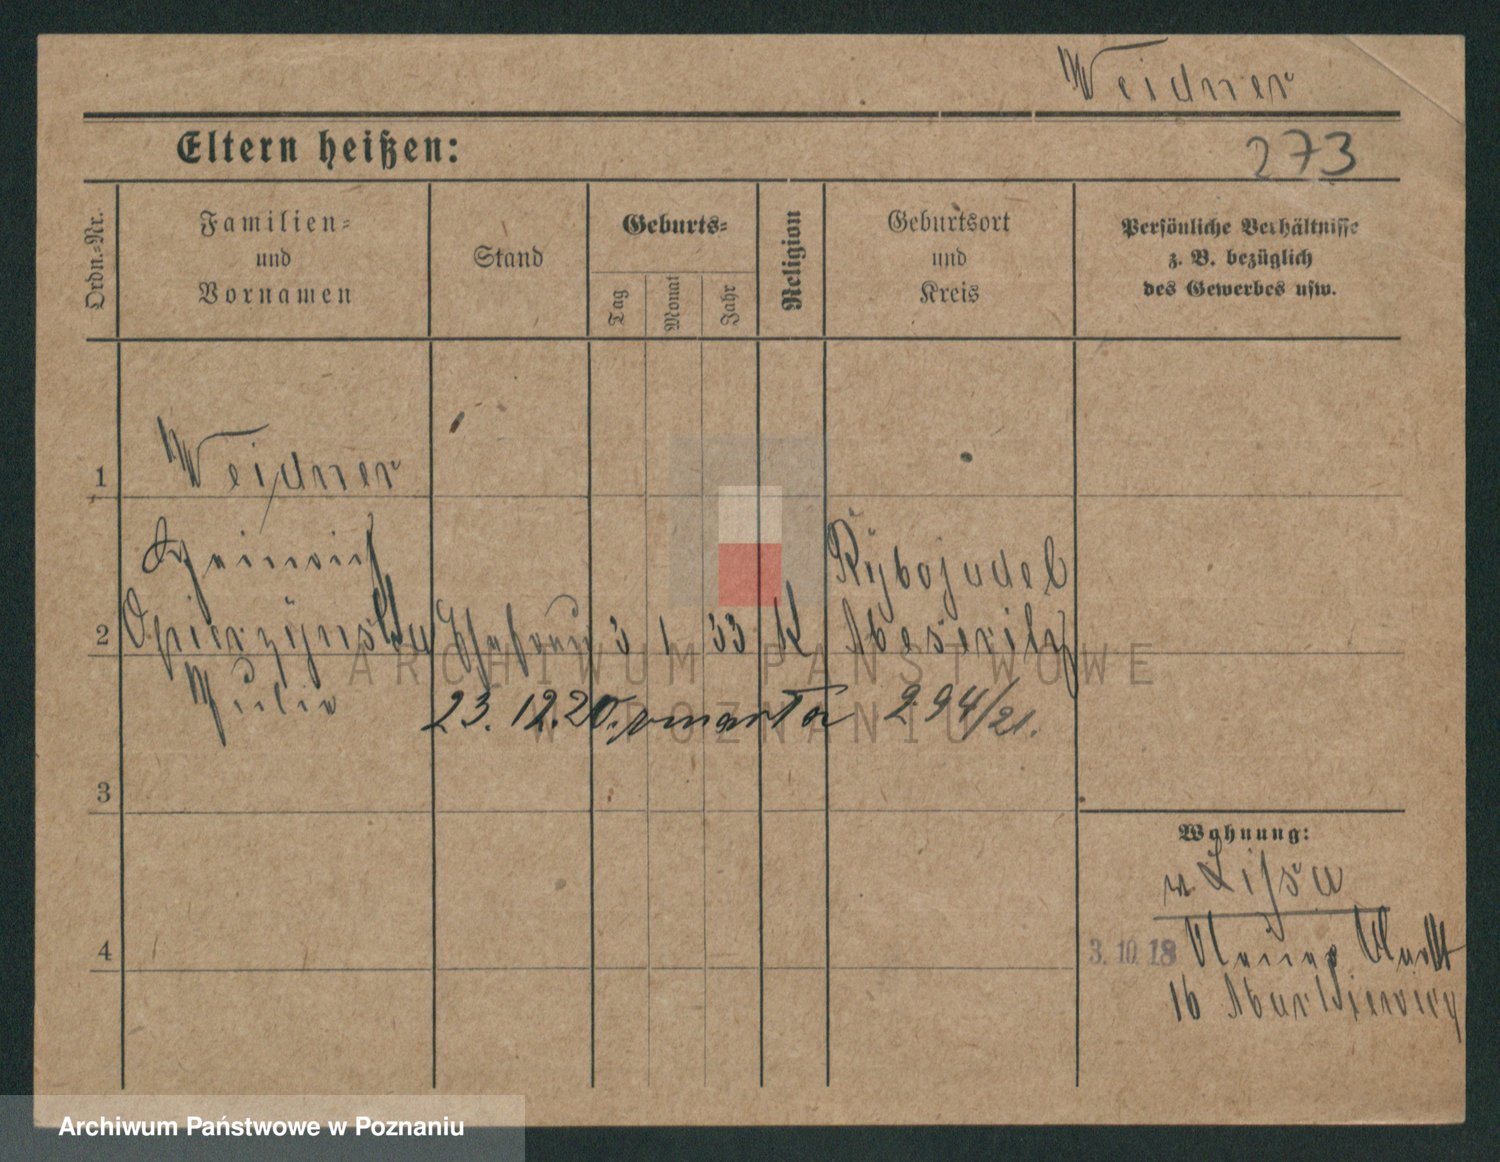 Weidner
Eltern heißen:
273
Ordn.-Nr.
Familien-
und
Vornamen
Stand
Geburts-
Tag
Monat
Jahr
Religion
Geburtsort
und
Kreis
Persönliche Verhältnisse
z. B. bezüglich
des Gewerbes usw.
1
Weidner
Heinrich
2
Opierzynska
Ehefrau
3
1
33
K
Rybojadel
Meseritz
Julie
23. 12. 20. umarła
294/21.
3
Wohnung:
Lissa
4
3. 10. 18
16
ARCHIWUM PAŃSTWOWE
W POZNANIU
Archiwum Państwowe w Poznaniu